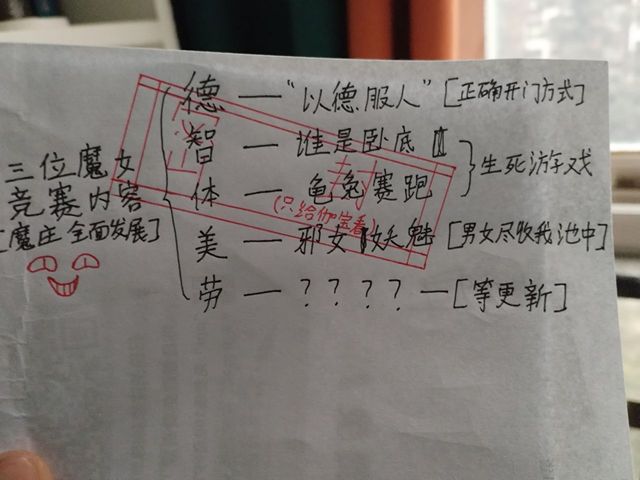 三位魔女
竞赛内容
[魔庄全面发展]
德 — “以德服人” [正确开门方式]
智 — 谁是卧底
体 — 龟兔赛跑
生死游戏
(只给伽宝看)
美 — 邪女妖魅 [男女尽收我池中]
劳 — ？？？？ — [等更新]